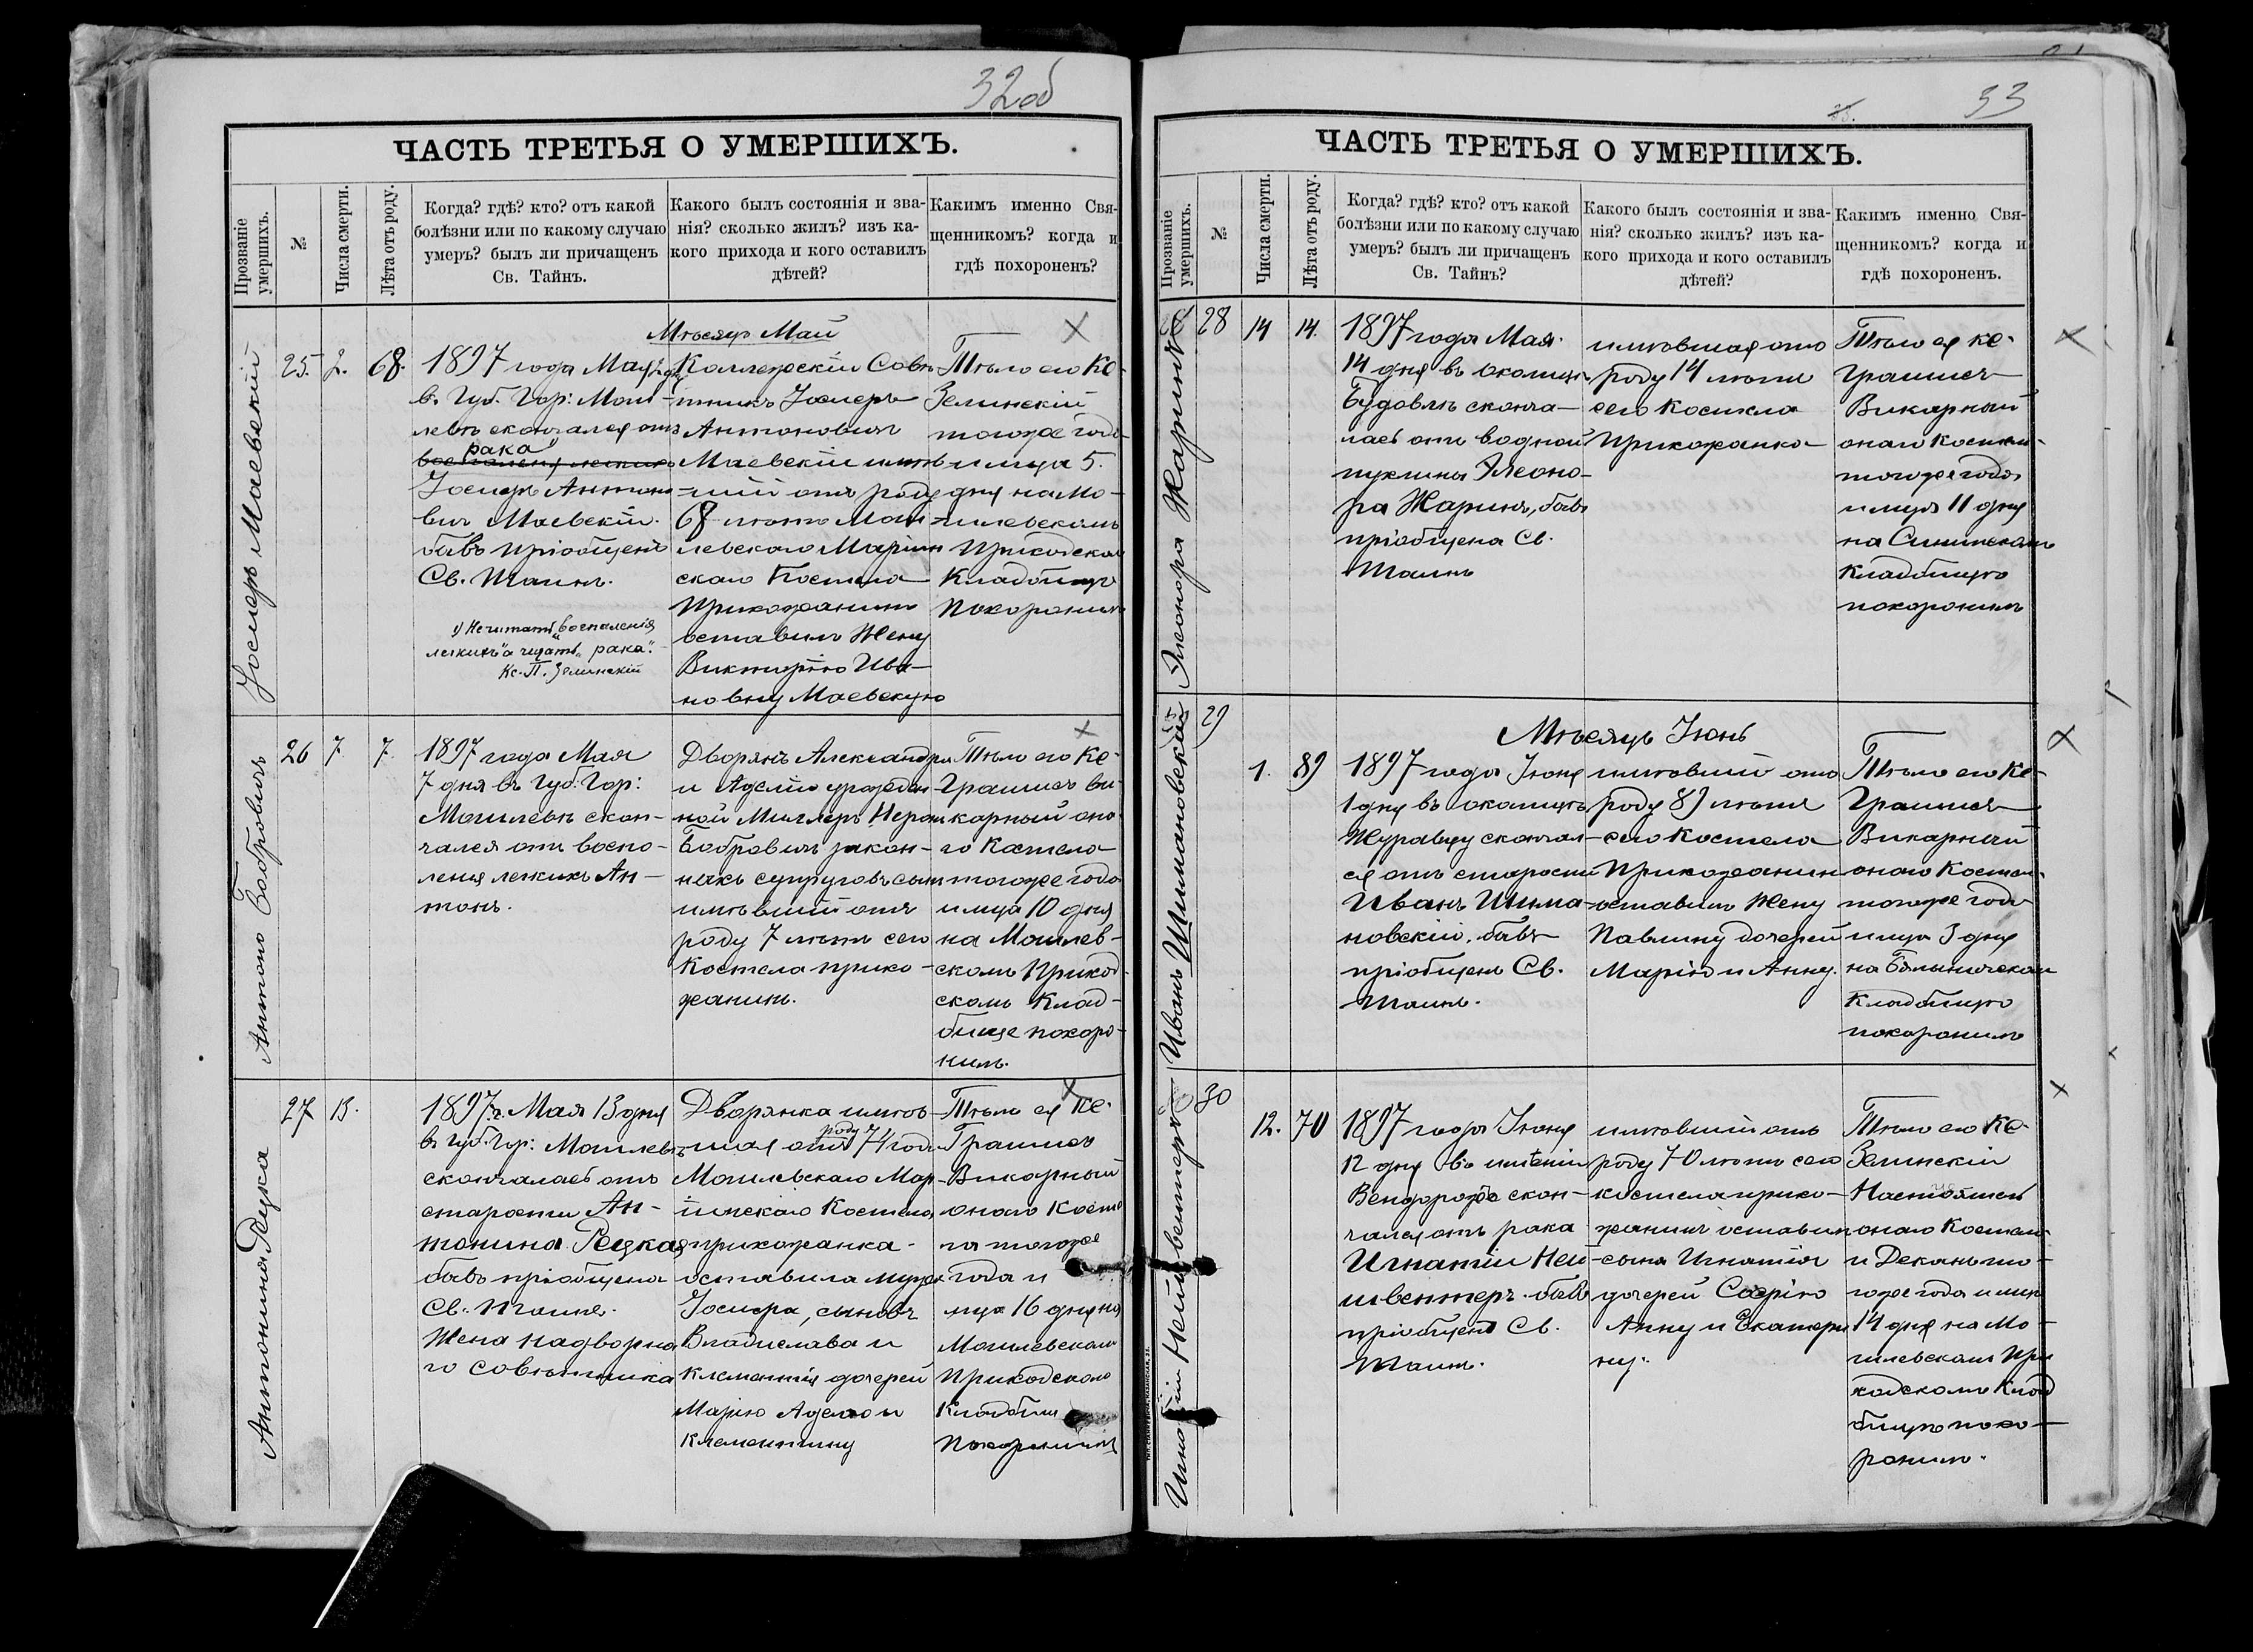 32об
ЧАСТЬ ТРЕТЬЯ О УМЕРШИХЪ.
Прозваніе умершихъ.
№
Числа смерти.
Лѣта отъ роду.
Когда? гдѣ? кто? отъ какой
болѣзни или по какому случаю
умеръ? былъ ли причащенъ
Св. Тайнъ.
Какого былъ состоянія и зва-
нія? сколько жилъ? изъ ка-
кого прихода и кого оставилъ
дѣтей?
Какимъ именно Свя-
щенникомъ? когда и
гдѣ похороненъ?
Мѣсяцъ Май
Іосифъ Маевскій
25.
2.
68.
1897 года Мая 2 дня
въ Губ. Гор: Моги-
левѣ скончался отъ
рака
воспаленія легкихъ
Іосифъ Антоно
вичъ Маевскій.
бывъ пріобщенъ
Св. Таинъ.
1) Не читать „воспаленія
легкихъ" а читать „рака".
Кс. П. Зелинскій
Коллежскій Совѣ
тникъ Іосифъ
Антоновичъ
Маевскій имѣв
шій отъ роду
68 лѣтъ Моги
левскаго Маріин
скаго Костела
прихожанинъ
оставилъ Жену
Викторію Ива-
новну Маевскую
Тѣло его Кс.
Зелинскій
тогоже года
и мца 5.
дня на Мо-
гилевскомъ
Приходском
Кладбищѣ
похоронилъ
Антонъ Бобровичъ
26
7
7.
1897 года Мая
7 дня въ Губ: Гор:
Могилевѣ скон-
чался отъ воспо-
ленія легкихъ Ан-
тонъ.
Дворянъ Александра
и Аделіи урожден
ной Миллеръ
Бобровичъ закон-
ныхъ супруговъ сынъ
имѣвшій отъ
роду 7 лѣтъ сего
Костела прихо-
жанинъ.
Тѣло его Кс.
Грашисъ Ви-
карный оно-
го Костела
тогоже года
и мца 10 дня
на Могилев-
скомъ Приход
скомъ Клад-
бище похоро-
нилъ.
Антонина Рецкая
27
13.
1897 г. Мая 13 дня
въ Губ. Гор: Могилевѣ
скончалась отъ
старости Ан-
тонина Рецкая
бывъ пріобщена
Св. Таинъ.
Жена надворна
го совѣтника
Дворянка имѣв-
шая отъ роду 74 года
Могилевскаго Мар-
іинскаго Костела
прихожанка.
оставила мужа
Іосифа, сыновъ
Владислава и
Клементія дочерей
Марію Аделію и
Клементину
Тѣло ея Кс.
Грашисъ
Викарный
онаго Косте
ла тогоже
года и
мца 16 дня на
Могилевскомъ
Приходскомъ
Кладбищ
Похоронилъ
33
ЧАСТЬ ТРЕТЬЯ О УМЕРШИХЪ.
Прозваніе умершихъ.
№
Числа смерти.
Лѣта отъ роду.
Когда? гдѣ? кто? отъ какой
болѣзни или по какому случаю
умеръ? былъ ли причащенъ
Св. Тайнъ?
Какого былъ состоянія и зва-
нія? сколько жилъ? изъ ка-
кого прихода и кого оставилъ
дѣтей?
Какимъ именно Свя-
щенникомъ? когда и
гдѣ похороненъ.
Элеонора Жаринъ
28
14
14.
1897 года Мая
14 дня въ околицѣ
Будовлѣ сконча-
лась отъ водной
пухлины Элеоно-
ра Жаринъ, бывъ
пріобщена Св.
Таинъ
имѣвшая отъ
роду 14 лѣтъ
сего Костела
прихожанка
Тѣло ея Кс.
Грашисъ
Викарный
онаго Костел-
тогоже года
и мца 11 дня
на
Кладбищѣ
похоронилъ
Иванъ Шимановскій
29
Мѣсяцъ Іюнь
1.
89
1897 года Іюня
1 дня въ околицѣ
Журавцу скончал-
ся отъ старости
Иванъ Шима-
новскій. бывъ
пріобщенъ Св.
Таинъ.
имѣвшій отъ
роду 89 лѣтъ
сего Костела
Прихожанинъ
оставилъ Жену
Павлину дочерей
Марію и Анну.
Тѣло его Кс.
Грашисъ
Викарный
онаго Костел.
тогоже года
и мца 3 дня
на Бялыничском
Кладбищѣ
похоронилъ
Игнатій Нейшвентеръ
30
12.
70
1897 года Іюня
12 дня въ имѣніи
Вендорожѣ скон-
чался отъ рака
Игнатій Ней-
швентеръ. бывъ
пріобщенъ Св.
Таинъ.
имѣвшій отъ
роду 70 лѣтъ сего
костела прихо-
жанинъ оставилъ
сына Игнатія
дочерей Софію
Анну и Екатери
ну.
Тѣло его Кс.
Зелинскій
Настоятель
онаго Костел.
и Деканъ то-
гоже года и мца
14 дня на Мо-
гилевскомъ При
ходскомъ Клад
бищѣ похо-
ронилъ.